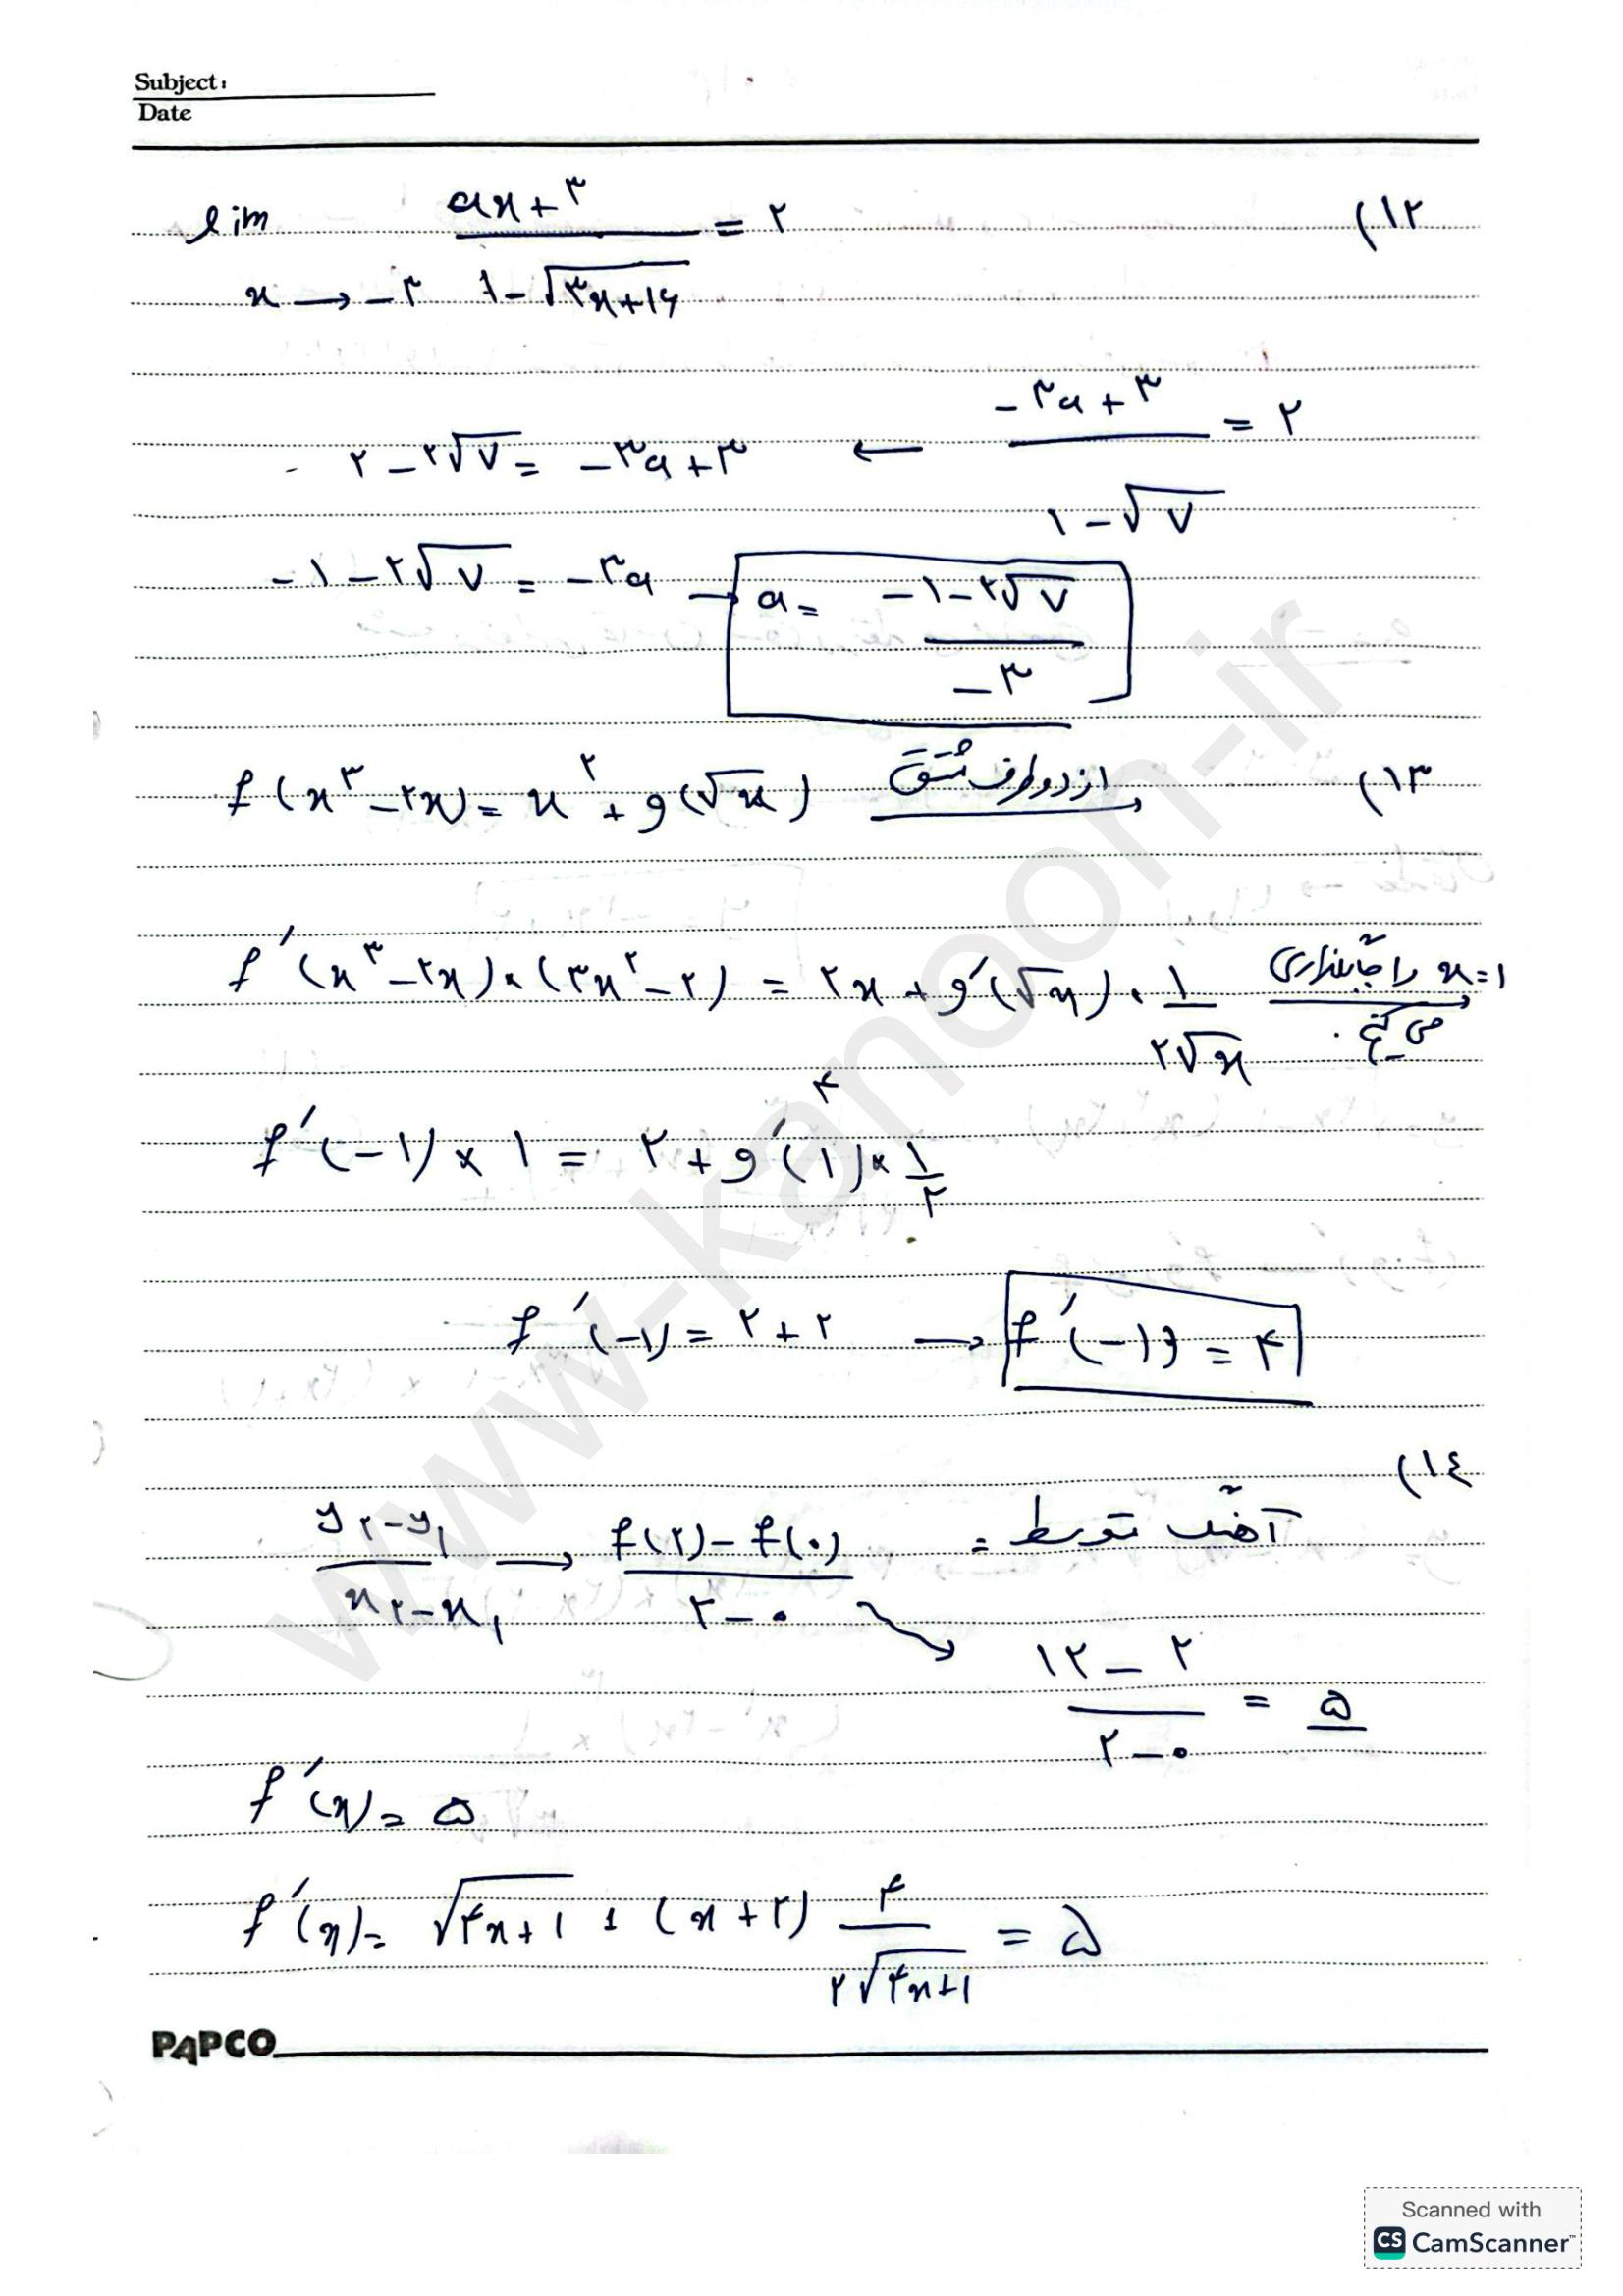 Subject:
Date
۱۲)
lim x → -۳ (ax + ۳) / (۱ - √(۳x + ۱۶)) = ۲
(-۳a + ۳) / (۱ - √۷) = ۲ ← ۲ - ۲√۷ = -۳a + ۳
-۱ - ۲√۷ = -۳a → a = (-۱ - ۲√۷) / -۳
۱۳) f(x³ - ۲x) = x² + g(√x) از دو طرف مشتق →
f′(x³ - ۲x) × (۳x² - ۲) = ۲x + g′(√x) · ۱ / (۲√x) x = ۱ را جایگذاری می کنیم.
۴
f′(-۱) × ۱ = ۲ + g′(۱) × ۱/۲
f′(-۱) = ۲ + ۲ → f′(-۱) = ۴
۱٤)
آهنگ متوسط = (y₂ - y₁) / (x₂ - x₁) → (f(۲) - f(۰)) / (۲ - ۰)
(۱۲ - ۲) / (۲ - ۰) = ۵
f′(x) = ۵
f′(x) = √(۴x + ۱) + (x + ۲) ۴ / (۲√(۴x + ۱)) = ۵
PAPCO
www-kanoon-ir
Scanned with
CS CamScanner™